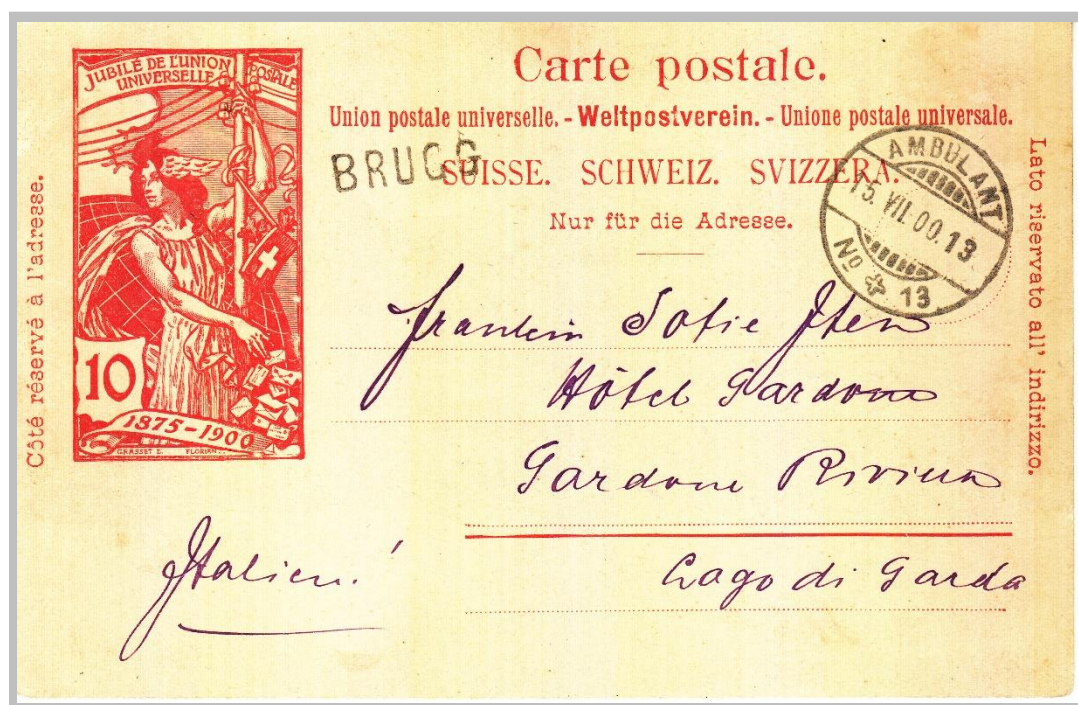 JUBILÉ DE L'UNION POSTALE
UNIVERSELLE
10
1875-1900
GRASSET E. FLORIAN
Côté réservé à l'adresse.
Carte postale.
Union postale universelle. - Weltpostverein. - Unione postale universale.
BRUGG
SUISSE. SCHWEIZ. SVIZZERA.
Nur für die Adresse.
AMBULANT
15. VII. 00. 13
No 13
Lato riservato all' indirizzo.
Fraulein Sofie Iten
Hôtel Gardone
Gardone Riviera
Lago di Garda
Italien!